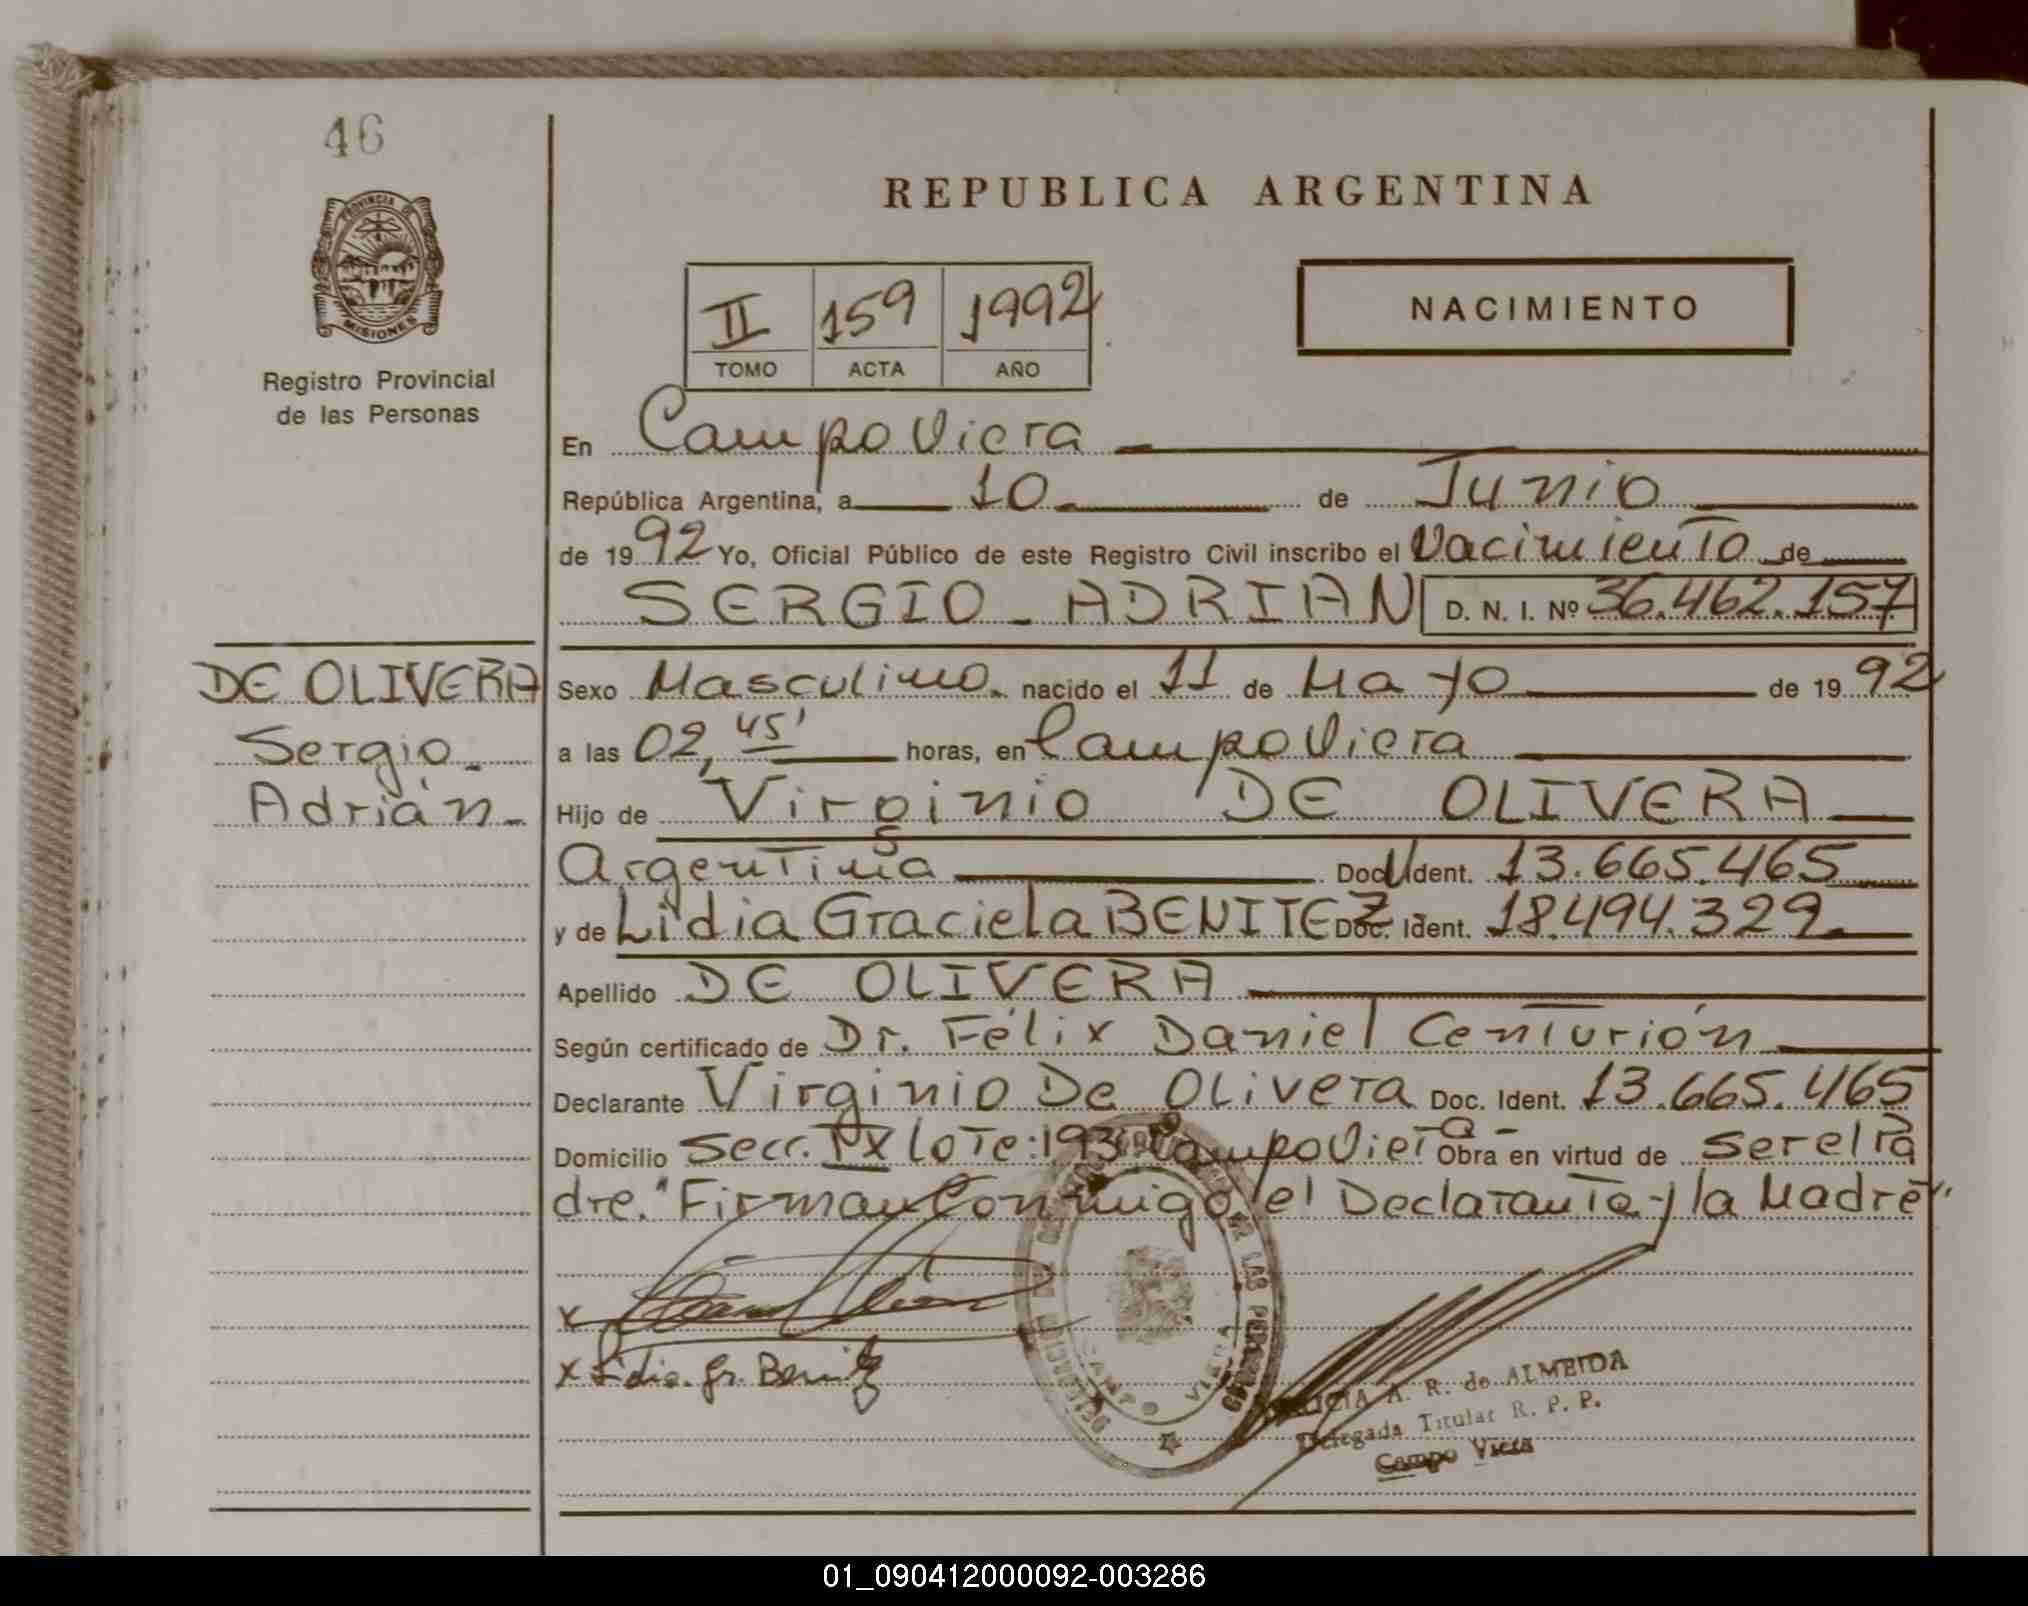 46
PROVINCIA DE
MISIONES
Registro Provincial
de las Personas
DE OLIVERA
Sergio
Adrián.-
REPUBLICA ARGENTINA
II 159 1992
TOMO ACTA AÑO
NACIMIENTO
En Campo Viera
República Argentina, a 10 de Junio
de 1992 Yo, Oficial Público de este Registro Civil inscribo el Nacimiento de
SERGIO ADRIAN D. N. I. Nº 36.462.157
Sexo Masculino. nacido el 11 de Mayo de 1992
a las 02,45' horas, en Campo Viera
Hijo de Virginio DE OLIVERA
Argentina Doc. Ident. 13.665.465
y de Lidia Graciela BENITEZ Doc. Ident. 18.494.329.
Apellido DE OLIVERA
Según certificado de Dr. Félix Daniel Centurión
Declarante Virginio De Olivera Doc. Ident. 13.665.465
Domicilio Secc. IX Lote: 193 Campo Viera- Obra en virtud de ser el Pa
dre. "Firman Conmigo el Declarante y la Madre"
x
x Lidia. Gr. Benitez
CAMPO VIERA
A. R. de ALMEIDA
Delegada Titular R. P. P.
Campo Viera
01_090412000092-003286